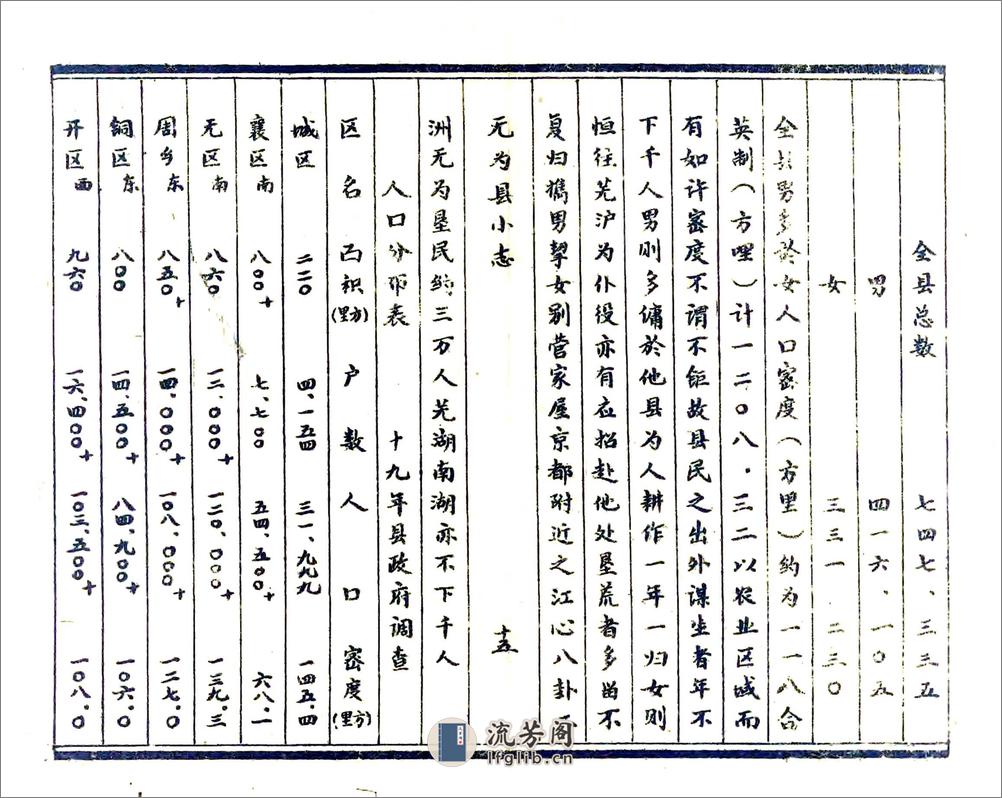 全县总数 七四七、三三五
男 四一六、一〇五
女 三三一、二三〇
全县男多於女人口密度（方里）约为一一八合
英制（方哩）计一二〇八．三二以农业区域而
有如许密度不谓不钜故县民之出外谋生者年不
下千人男则多傭於他县为人耕作一年一归女则
恒往芜沪为仆役亦有应招赴他处垦荒者多留不
复归携男挈女别营家屋京都附近之江心八卦
无为县小志 十五
洲无为垦民约三万人芜湖南湖亦不下千人
人口分布表 十九年县政府调查
区名 面积（方里） 户数 人口 密度（方里）
城区 二二〇 四、一五四 三一、九九九 一四五．四
襄区南 八〇〇+ 七、七〇〇 五四、五〇〇+ 六八．一
无区南 八六〇 一二、〇〇〇+ 一二〇、〇〇〇+ 一三九．三
周乡东 八五〇+ 一四、〇〇〇+ 一〇八、〇〇〇+ 一二七．〇
铜区东 八〇〇 一四、五〇〇+ 八四、九〇〇+ 一〇六．〇
开区西 九六〇 一六、四〇〇+ 一〇三、五〇〇+ 一〇八．〇
流芳阁
lfglib.cn